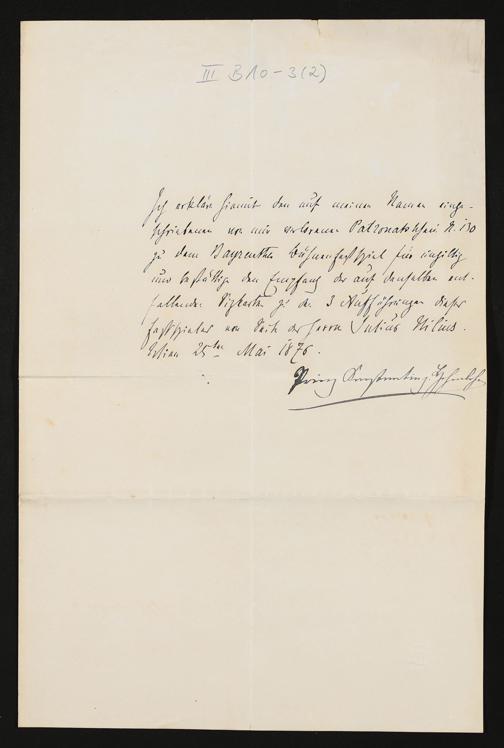 III B10-3(2)
Ich erkläre hiemit den auf meinen Namen einge-
schriebenen von mir verlorenen Patronatsschein N. 130
zu dem Bayreuther Bühnenfestspiel für ungiltig
und bestättige den Empfang der auf denselben ent-
fallenden Sitzkarten zu den 3 Aufführungen dieser
Festspiele von Seite des Herrn Julius
25ten Mai 1876.
Prinz Constantin z. Hohenlohe